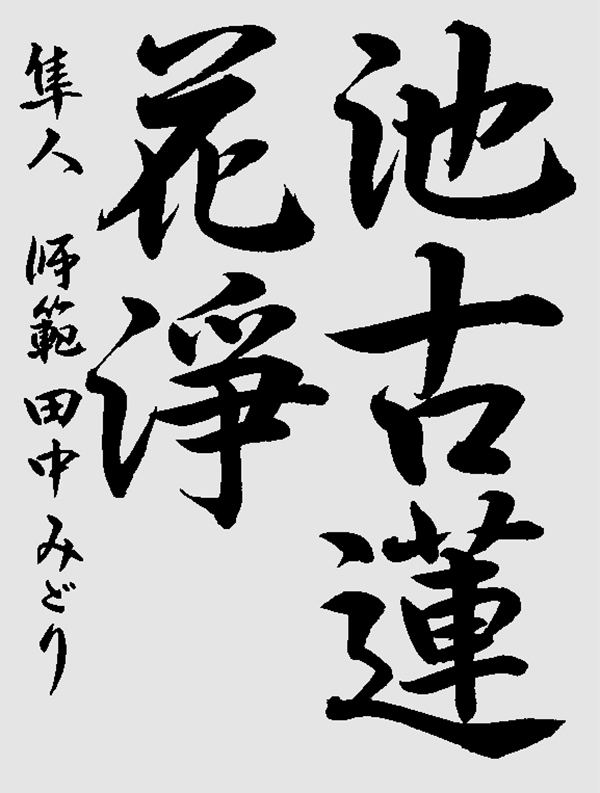 池古蓮
花淨
隼人 師範 田中みどり